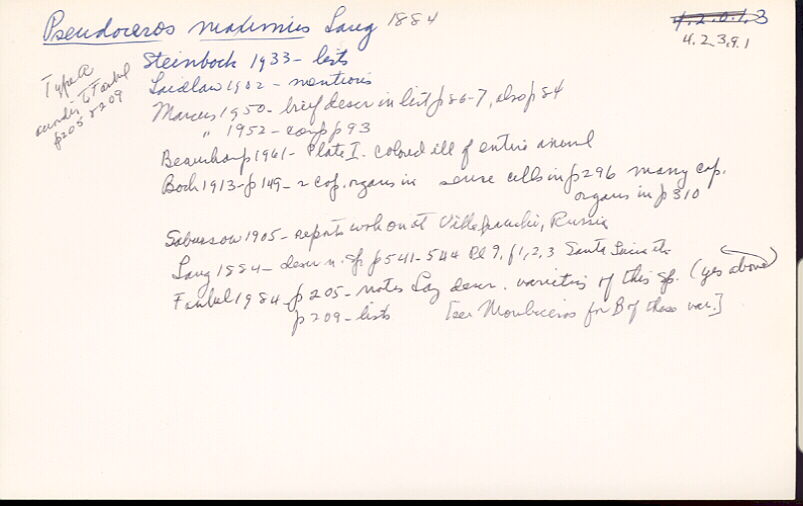 Pseudoceros maximus Lang 1884
4.2.0.1.3
4.2.3.9.1
Type A
accordig to Faubel
p205 & 209
Steinbock 1933 - lists
Laidlaw 1902 - mentions
Marcus 1950 - brief descr in list p 86-7, also p 84
" 1952 - comp p 93
Beauchamp 1961 - Plate I. colored ill of entire animal
Bock 1913 - p 149 - 2 cop. organs in sense cells in p 296 many cop.
organs in p 310
Sabussow 1905 - reports work on at Villefranche, Russia
Lang 1884 - descr n. sp. p 541-544 Pl 9, f 1,2,3
Faubel 1984 - p 205 - notes Lag descr. varieties of this sp. (yes above)
p 209 - lists [see Monbiceros for B of these var.]